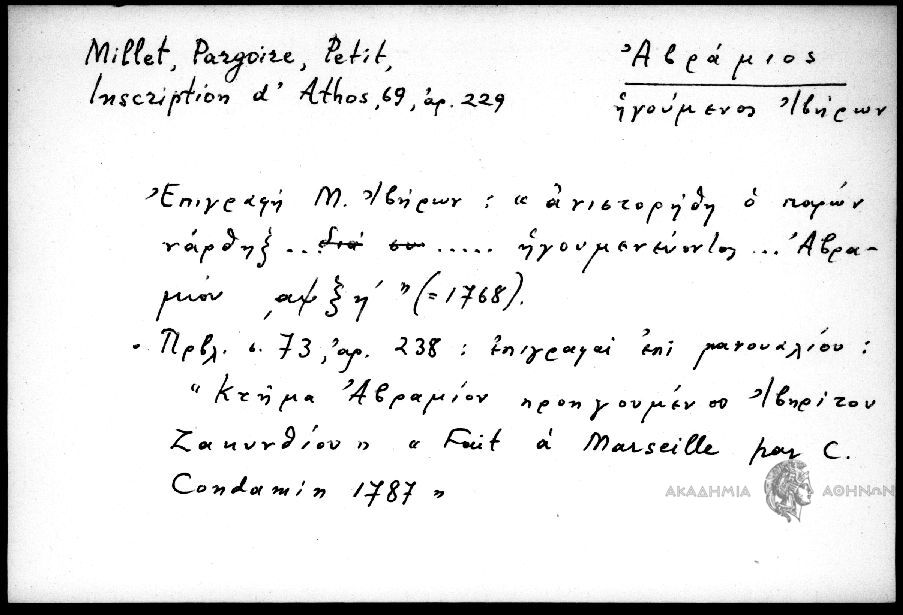 Millet, Pargoire, Petit,
Inscription d' Athos, 69, ἀρ. 229
Ἀβράμιος
ἡγούμενος Ἰβήρων
Ἐπιγραφή Μ. Ἰβήρων : « ἀνιστορήθη ὁ παρών
νάρθηξ ... διά συ ..... ἡγουμενεύοντος ... Ἀβρα-
μίου ͵αψξη´ » (= 1768).
Πρβλ. σ. 73, ἀρ. 238 : ἐπιγραφαί ἐπί μανουαλίου :
« Κτῆμα Ἀβραμίου προηγουμένου Ἰβηρίτου
Ζακυνθίου » « Fait à Marseille par C.
Condamin 1787 »
ΑΚΑΔΗΜΙΑ ΑΘΗΝΩΝ